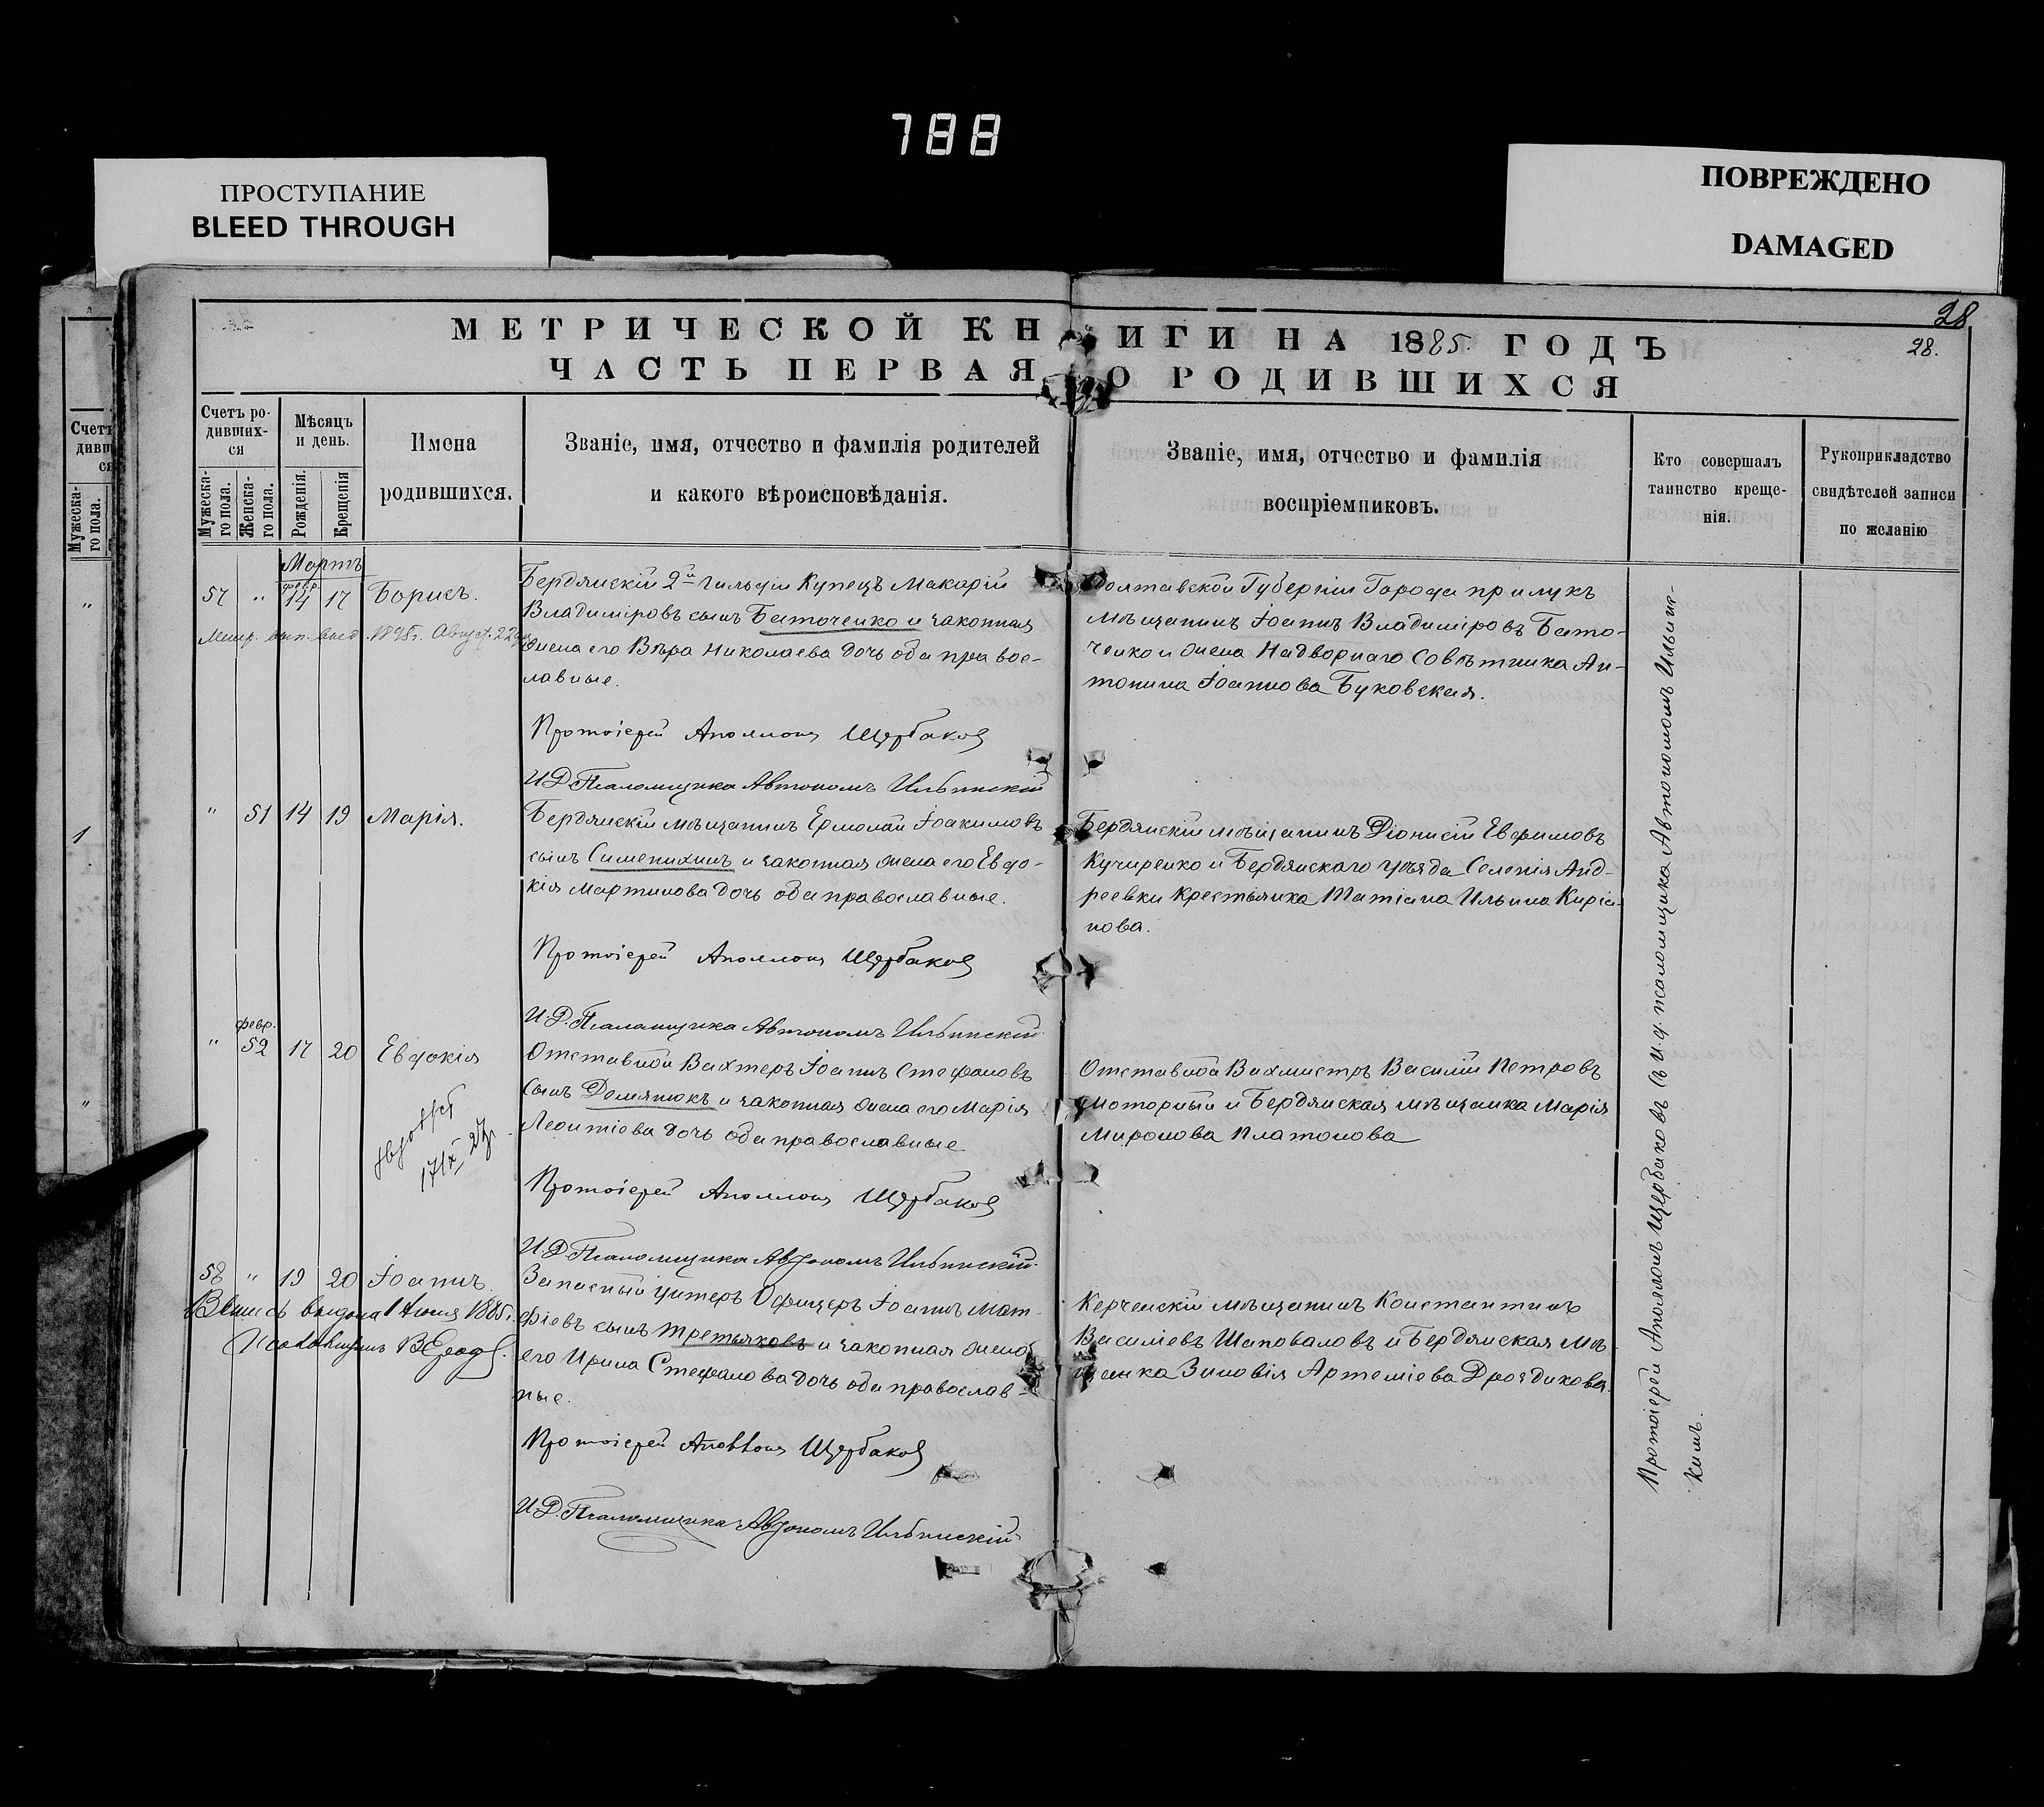 788
ПРОСТУПАНИЕ
BLEED THROUGH
ПОВРЕЖДЕНО
DAMAGED
28
28.
МЕТРИЧЕСКОЙ КНИГИ НА 1885. ГОДЪ
ЧАСТЬ ПЕРВАЯ О РОДИВШИХСЯ
Счетъ ро-
дивших-
ся
Мужеска-
го пола.
Женска-
го пола.
Мѣсяцъ
и день.
Рожденія.
Крещенія
Имена
родившихся.
Званіе, имя, отчество и фамилія родителей
и какого вѣроисповѣданія.
Званіе, имя, отчество и фамилія
воспріемниковъ.
Кто совершалъ
таинство креще-
нія.
Рукоприкладство
свидѣтелей записи
по желанію
Мартъ
57 " февр. 14 17 Борисъ.
Метр. вып. выд. 1895г. Август. 22
Бердянскій 2й гильдіи Купецъ Макарій
Владиміровъ сынъ Баточенко и законная
жена его Вѣра Николаева дочь оба правос-
лавные.
Полтавской Губерніи Города прилукъ
мѣщанинъ Іоаннъ Владиміровъ Бато-
ченко и жена Надворнаго Совѣтника Ан-
тонина Іоаннова Буковская.
Протоіерей Аполлонъ Щербаковъ
И.Д. Псаломщика Автономъ Ильинскій
" 51 14 19 Марія.
Бердянскій мѣщанинъ Ермолай Іоакимовъ
сынъ Сименихинъ и законная жена его Евдо-
кія Мартинова дочь оба православные.
Бердянскій мѣщанинъ Діонисій Евфимовъ
Кучиренко и Бердянскаго уѣзда Селенія Анд-
реевки Крестьянка Татіана Ильина Киріа-
нова.
Протоіерей Аполлонъ Щербаковъ
И.Д. Псаломщика Автономъ Ильинскій
" февр. 52 17 20 Евдокія
Отставной Вахтеръ Іоаннъ Стефановъ
сынъ Демянюкъ и законная жена его Марія
Леонтіева дочь оба православные
Отставной Вахмистръ Василій Петровъ
Моторный и Бердянская мѣщанка Марія
Миронова Платонова
Протоіерей Аполлонъ Щербаковъ
И.Д. Псаломщика Автономъ Ильинскій
58 " 19 20 Іоаннъ.
выдана 1 Іюня 1885г.
Запасный Унтеръ Офицеръ Іоаннъ Мат-
фіевъ сынъ Третьяковъ и законная жена
его Ирина Стефанова дочь оба православ-
ные.
Керченскій мѣщанинъ Константинъ
Василіевъ Шаповаловъ и Бердянская мѣ-
щанка Зиновія Артеміева Дроздикова.
Протоіерей Аполлонъ Щербаковъ
И.Д. Псаломщика Автономъ Ильинскій
Протоіерей Аполлонъ Щербаковъ съ и.д. псаломщика Автономомъ Ильинс-
кимъ.
Мужеска-
го пола.
"
1
"